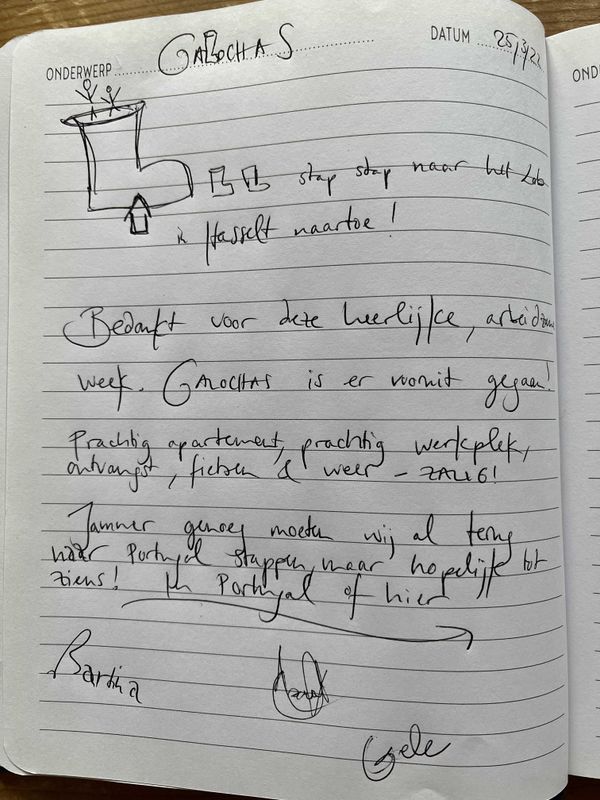 ONDERWERP GALOCHAS DATUM 25/3/22
OND
stap stap naar het Lab
in Hasselt naartoe!
Bedankt voor deze heerlijke, arbeidzame
week. GALOCHAS is er vooruit gegaan!
Prachtig apartement, prachtig werkplek,
ontvangst, fietsen & weer – ZALIG!
Jammer genoeg moeten wij al terug
naar Portugal stappen, maar hopelijk tot
ziens! In Portugal of hier
Bartina
Gele